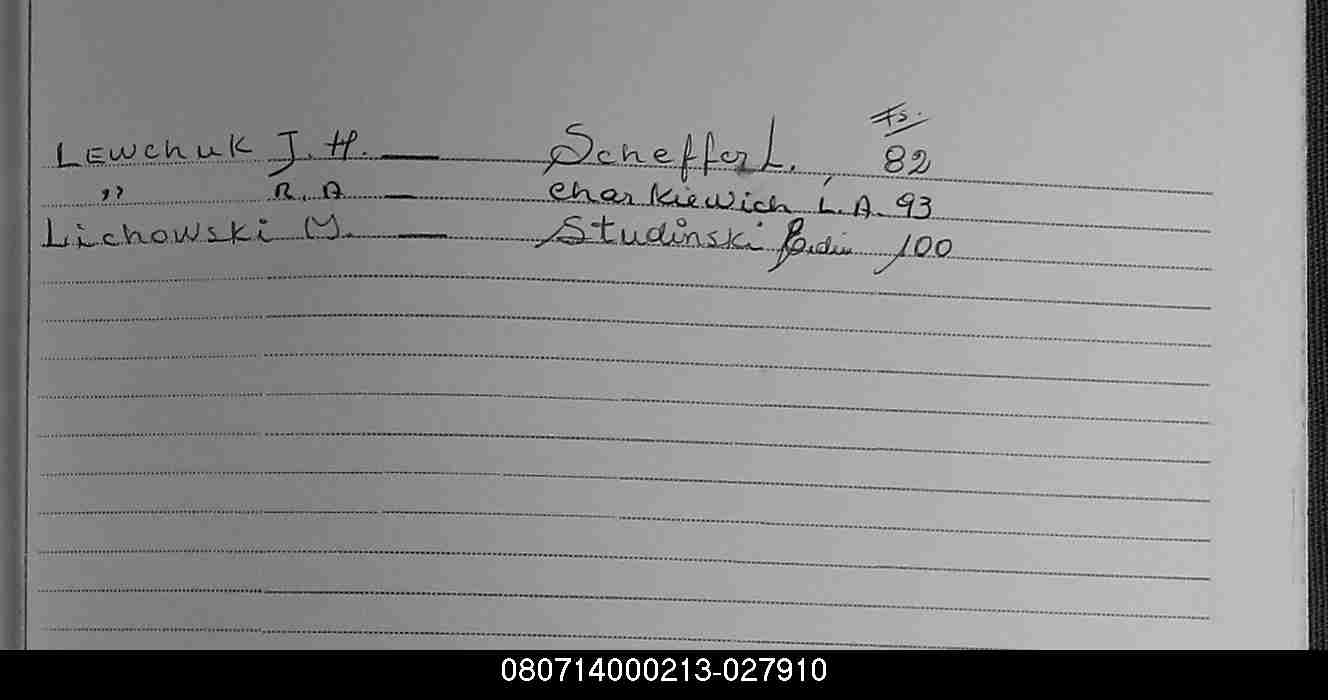 Fs.
Lewchuk J. H. — Scheffer L. 82
" R. A — Charkiewich L. A. 93
Lichowski M. — Studinski 100
080714000213-027910